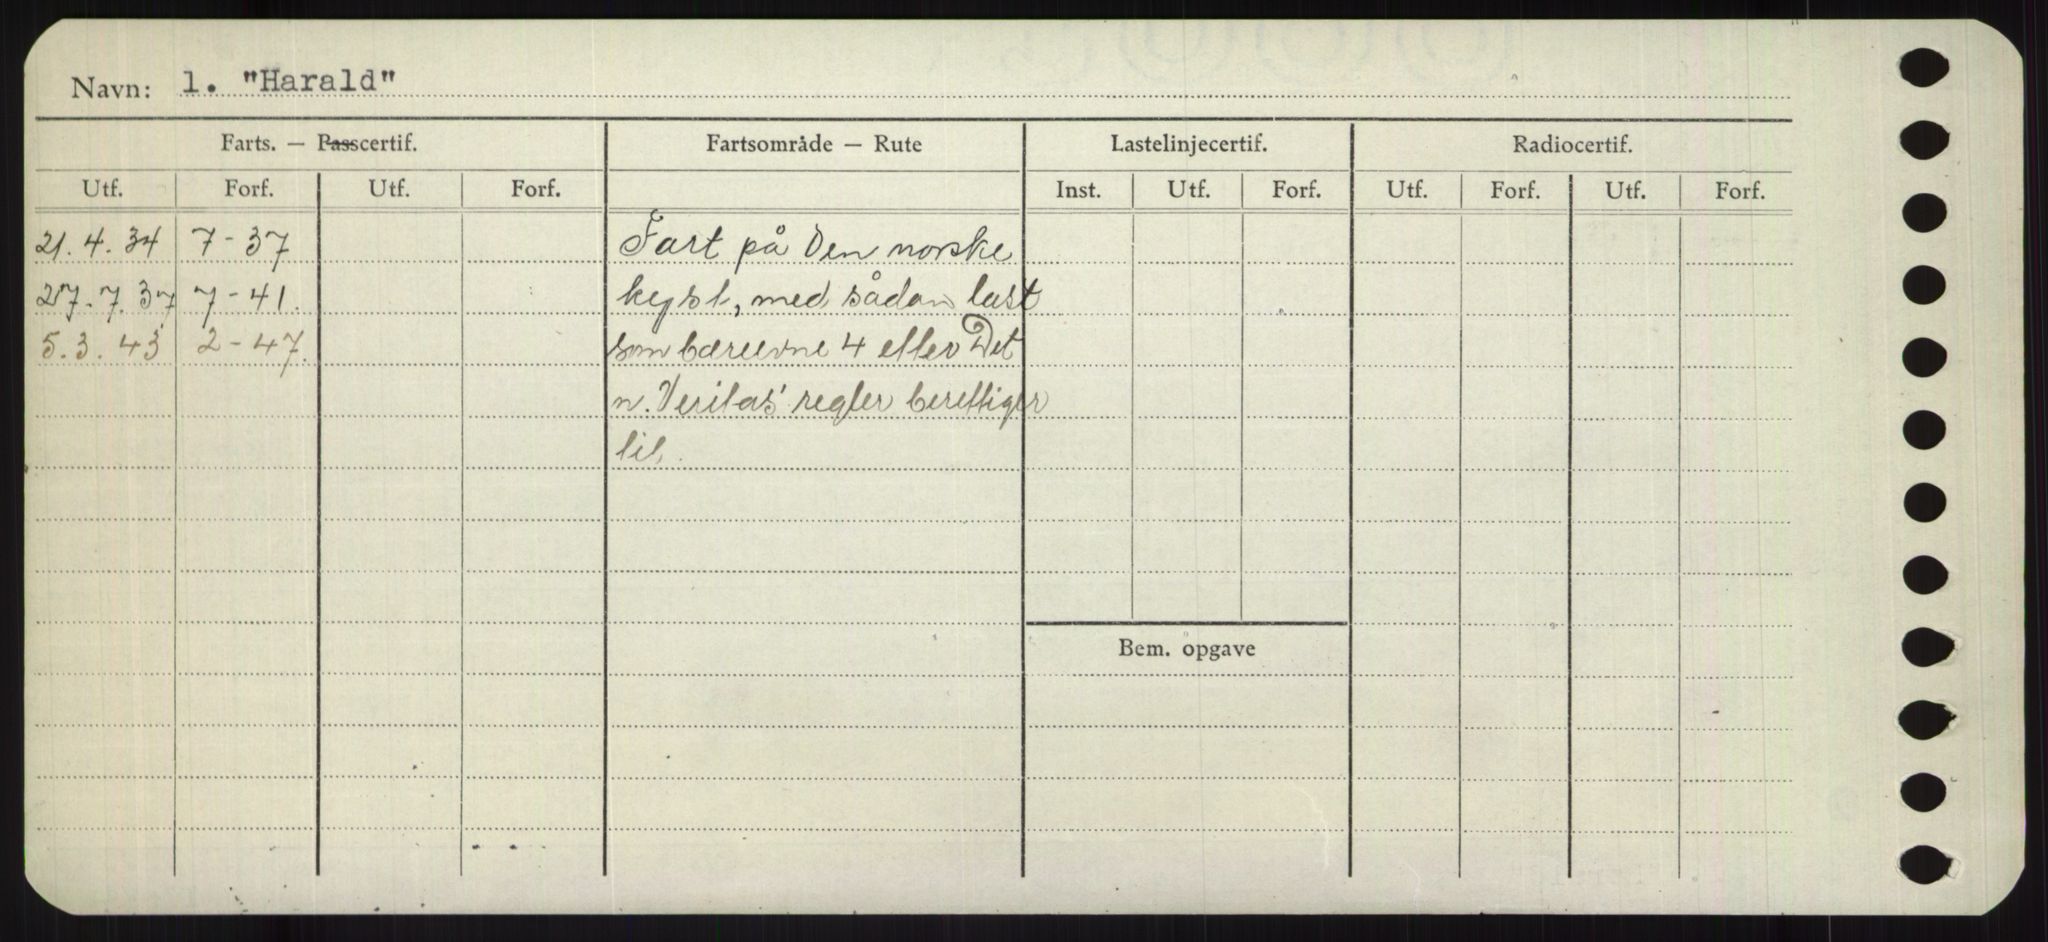 Navn: 1. "Harald"
Farts. — Passcertif. Fartsområde — Rute Lastelinjecertif. Radiocertif.
Utf. Forf. Utf. Forf. Inst. Utf. Forf. Utf. Forf. Utf. Forf.
21.4.34 7-37 Fart på Den norske
27.7.37 7-41. kyst, med sådan last
5.3.43 2-47. som bæreevne 4 efter Det
n. Veritas' regler berettiger
til.
Bem. opgave